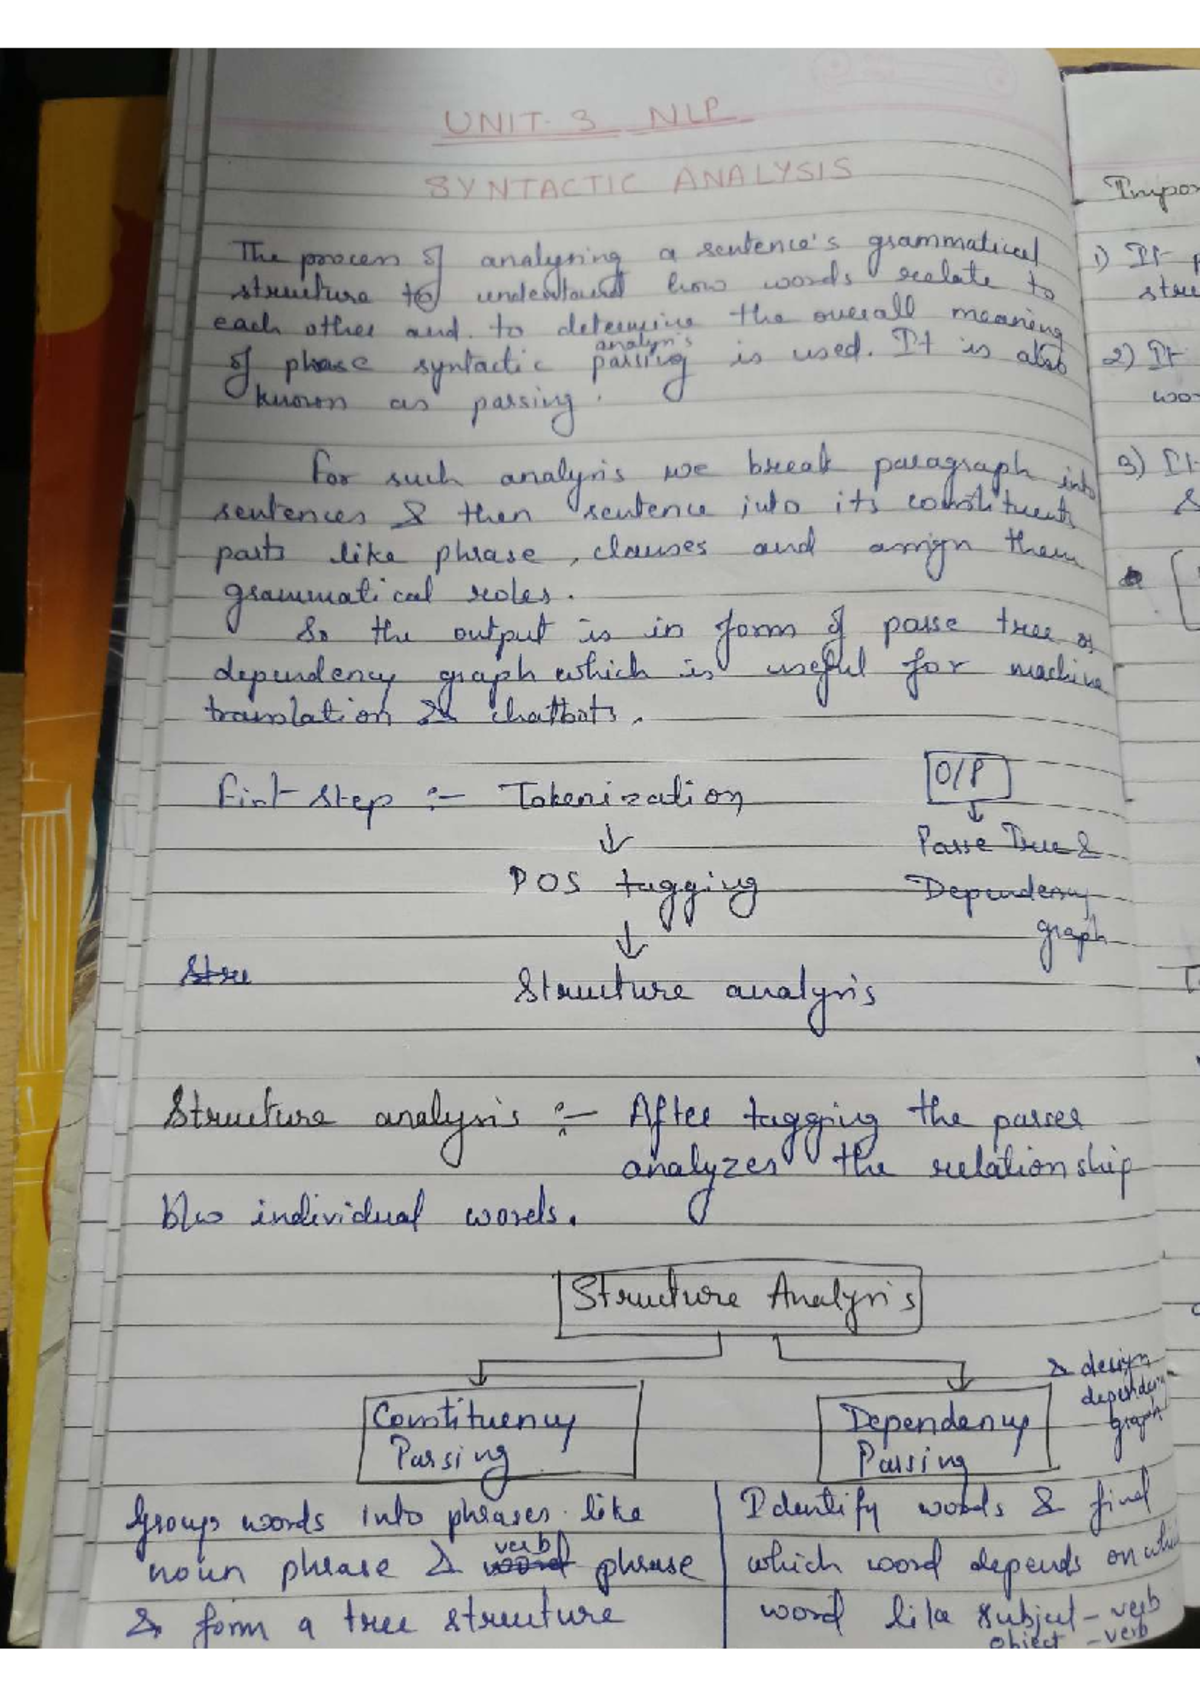 UNIT-3 NLP
SYNTACTIC ANALYSIS
The process of analysing a sentence's grammatical
structure to understand how words relate to
each other and to determine the overall meaning
analysis
of phrase syntactic parsing is used. It is also
known as parsing.
For such analysis we break paragraph into
sentences & then sentence into its constituents
parts like phrase, clauses and assign them
grammatical roles.
So the output is in form of parse tree or
dependency graph which is useful for machine
translation & chatbots.
First Step :- Tokenization
↓
POS tagging
↓
Stru
Structure analysis
O/P
↓
Parse Tree &
Dependency
graph
Structure analysis :- After tagging the parser
analyzes the relationship
b/w individual words.
Structure Analysis
Constituency
Parsing
Dependency
Parsing
& design
dependency
graph
Group words into phrases like
verb
noun phrase & word phrase
& form a tree structure
Identify words & find
which word depends on which
word like subject-verb
object-verb
Impor
1) It
stru
2) It
wo
3) It
&